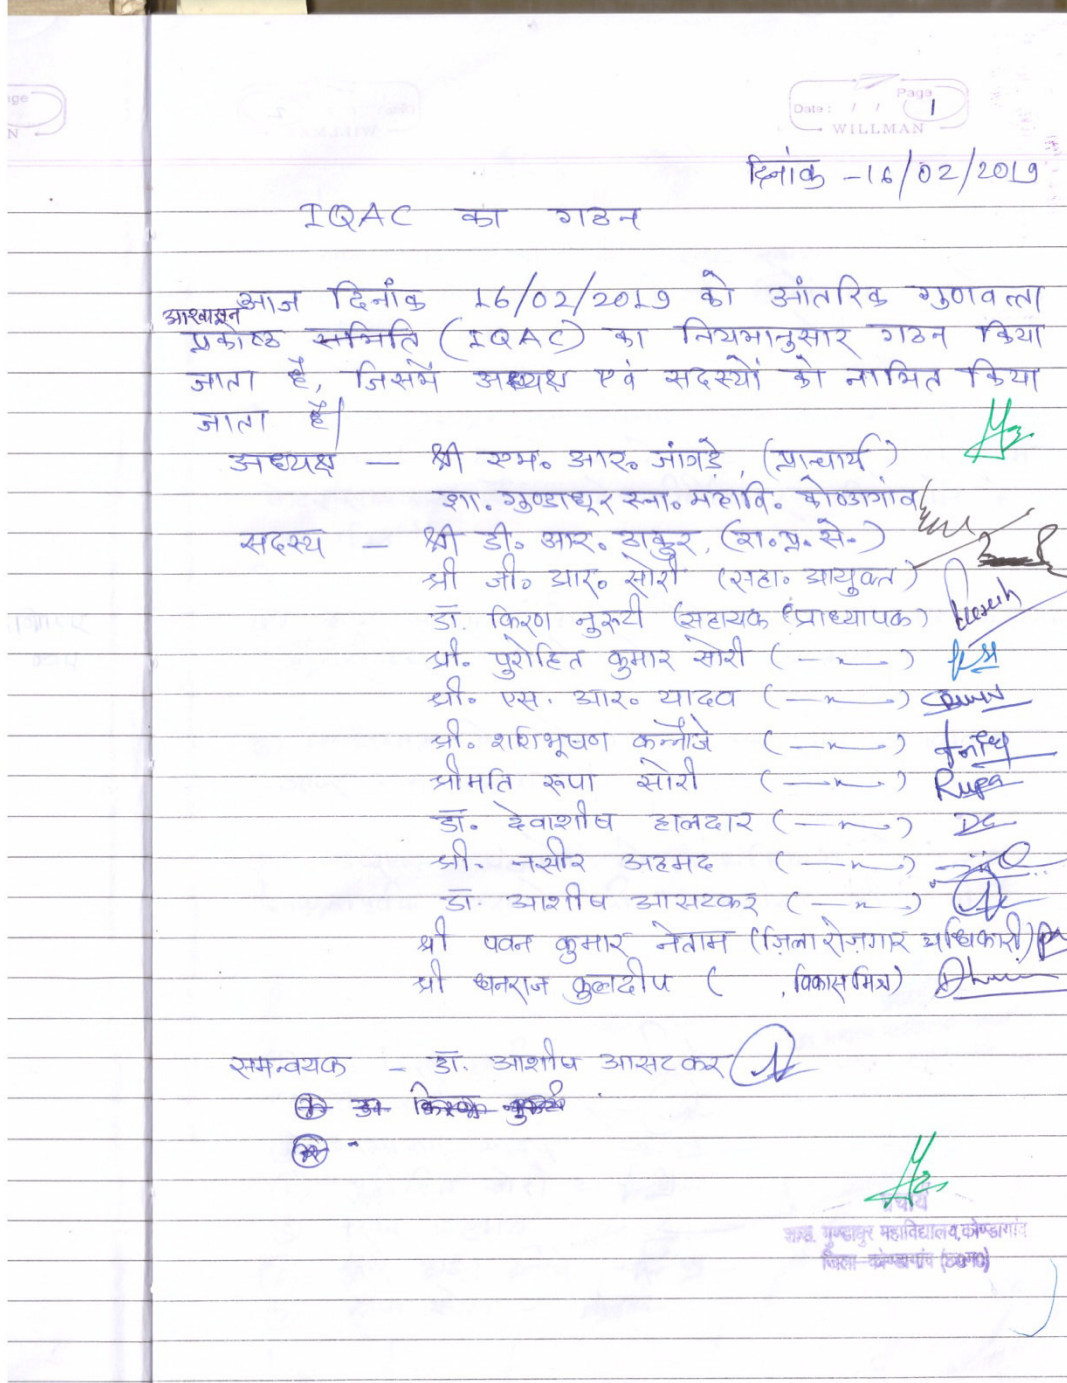 Date : / / Page 1
WILLMAN
दिनांक - 16/02/2019
IQAC का गठन
आज दिनांक 16/02/2019 को आंतरिक गुणवत्ता
आश्वासन
प्रकोष्ठ समिति (IQAC) का नियमानुसार गठन किया
जाता है, जिसमें अध्यक्ष एवं सदस्यों को नामित किया
जाता है|
अध्यक्ष — श्री एम. आर. जांगड़े, (प्राचार्य)
शा. गुण्डाधूर स्ना. महावि. कोण्डागांव
सदस्य — श्री डी. आर. ठाकुर, (रा.प्र.से.)
श्री जी. आर. सोरी (सहा. आयुक्त)
डॉ. किरण नुरुटी (सहायक प्राध्यापक)
श्री. पुरोहित कुमार सोरी ( —〃— )
श्री. एस. आर. यादव ( —〃— )
श्री. शशिभूषण कन्नौजे ( —〃— )
श्रीमति रूपा सोरी ( —〃— ) Rupa
डॉ. देवाशीष हालदार ( —〃— )
श्री. नसीर अहमद ( —〃— )
डॉ. आशीष आसटकर ( —〃— )
श्री पवन कुमार नेताम (ज़िला रोज़गार अधिकारी)
श्री धनराज कुलदीप ( , विकास मित्र)
समन्वयक - डॉ. आशीष आसटकर
डा किरण नुरूटी
प्राचार्य
शास. गुण्डाधुर महाविद्यालय, कोण्डागांव
जिला-कोण्डागांव (छ०ग०)